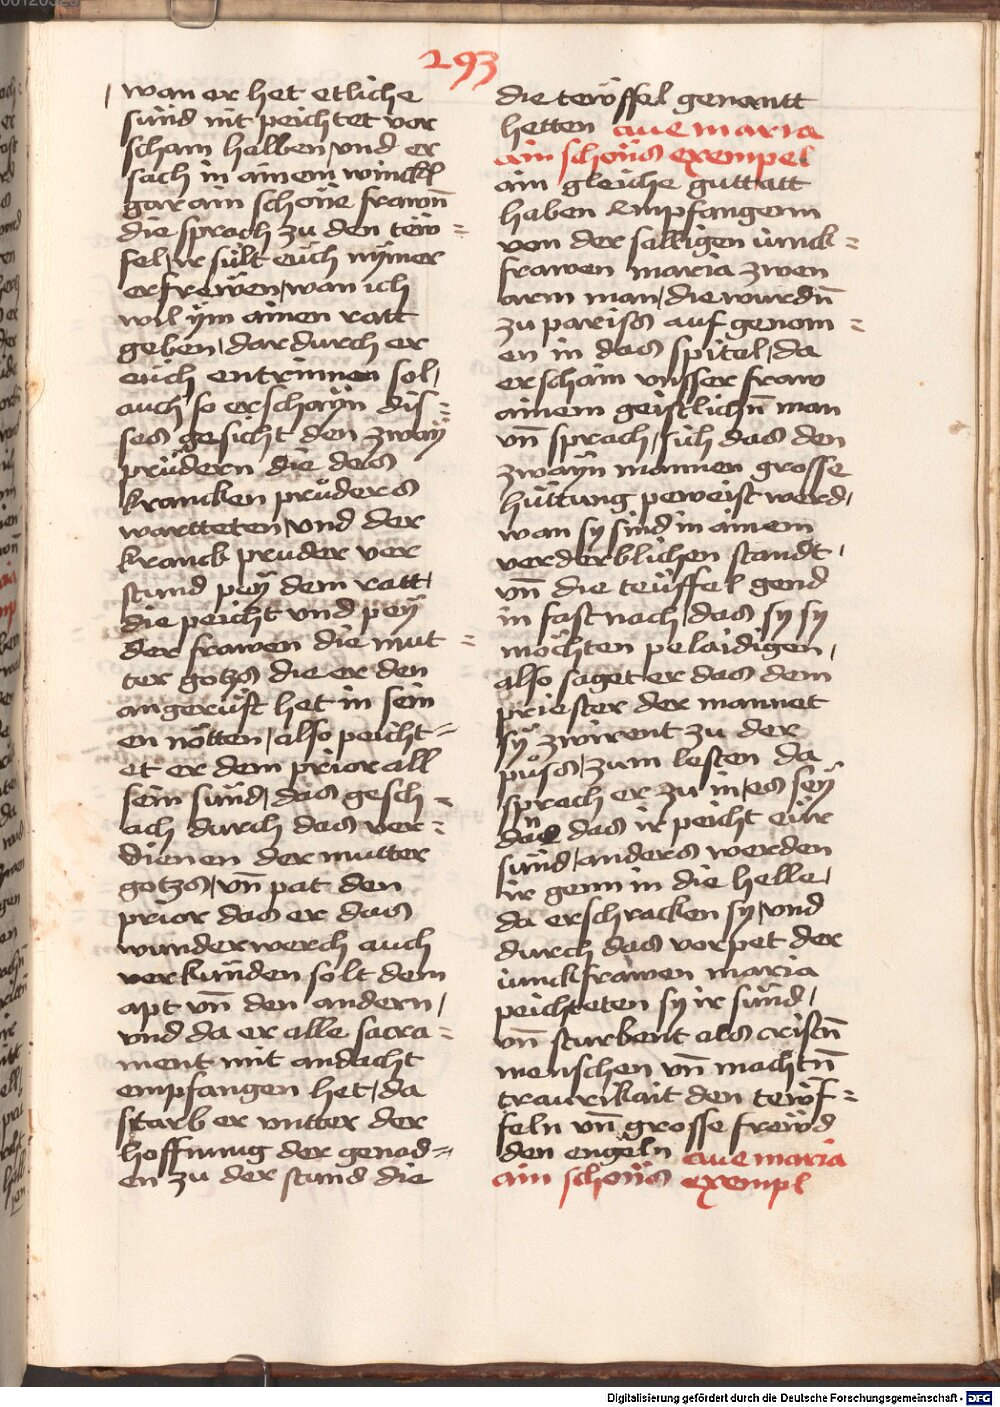 293
wan er het etliche
sünd nit peichtet vor
scham halben, vnd er
sach in ainem winckl
gar ain schöne frawn̄
die sprach zu den tew=
fel, ir sült euch nÿmer
erfrewen, wan ich
wil ÿm ainen ratt
geben, dardurch er
euch entrinnen sol,
auch so erschayn dis=
ses gesicht den zwaÿ
prüdern die des
krancken prüders
wartteten, vnd der
kranck pruder ver
stund peÿ dem ratt,
die peicht vnd peÿ
der frawen die mut=
ter gotzs die er den
angerüft het in sein
en nötten, also peicht=
et er dem prior all
sein sünd, das gesch=
ach durch das ver=
dienen der mutter
gotzs, vn̄ pat den
prior das er das
wunderwerch auch
verkünden solt dem
apt vn̄ den andern,
vnd da er alle sacra=
ment mit andacht
empfangen het, da
starb er vntter der
hoffnung der genad=
en zu der stund die
die tewffel genantt
hetten aue maria
ain schöns exempel
ain gleiche guttatt
haben empfangenn
von der salligen iunck=
frawen maria zwen
arm man, die wurdn̄
zu pariss auf genom=
en in das spitel, da
erschain vnsser fraw
ainem geistlichn̄ man
vn̄ sprach, sich das den
zwayn mannen grosse
hüttung peweist werd,
wan sy sind in ainem
verderblichen standt,
vn̄ die teüffel gend
in fast nach, das sy sy
möchten pelaidigen,
also saget er das dem
priester der mannet
sÿ zwirent zu der
puss, zum lesten da
sprach er zu in, es seÿ
das ir peicht eür
sünd, anders werden
ir genn in die helle,
da erschracken sy, vnd
durch das vorpet der
iunckfrawen maria
peichteten sy ir sünd,
vn̄ sturbent als cristn̄
menschen vn̄ machtn̄
traurikait den tewf=
feln vn̄ grosse frewd
den engeln aue maria
ain schöns exempl
Digitalisierung gefördert durch die Deutsche Forschungsgemeinschaft - DFG